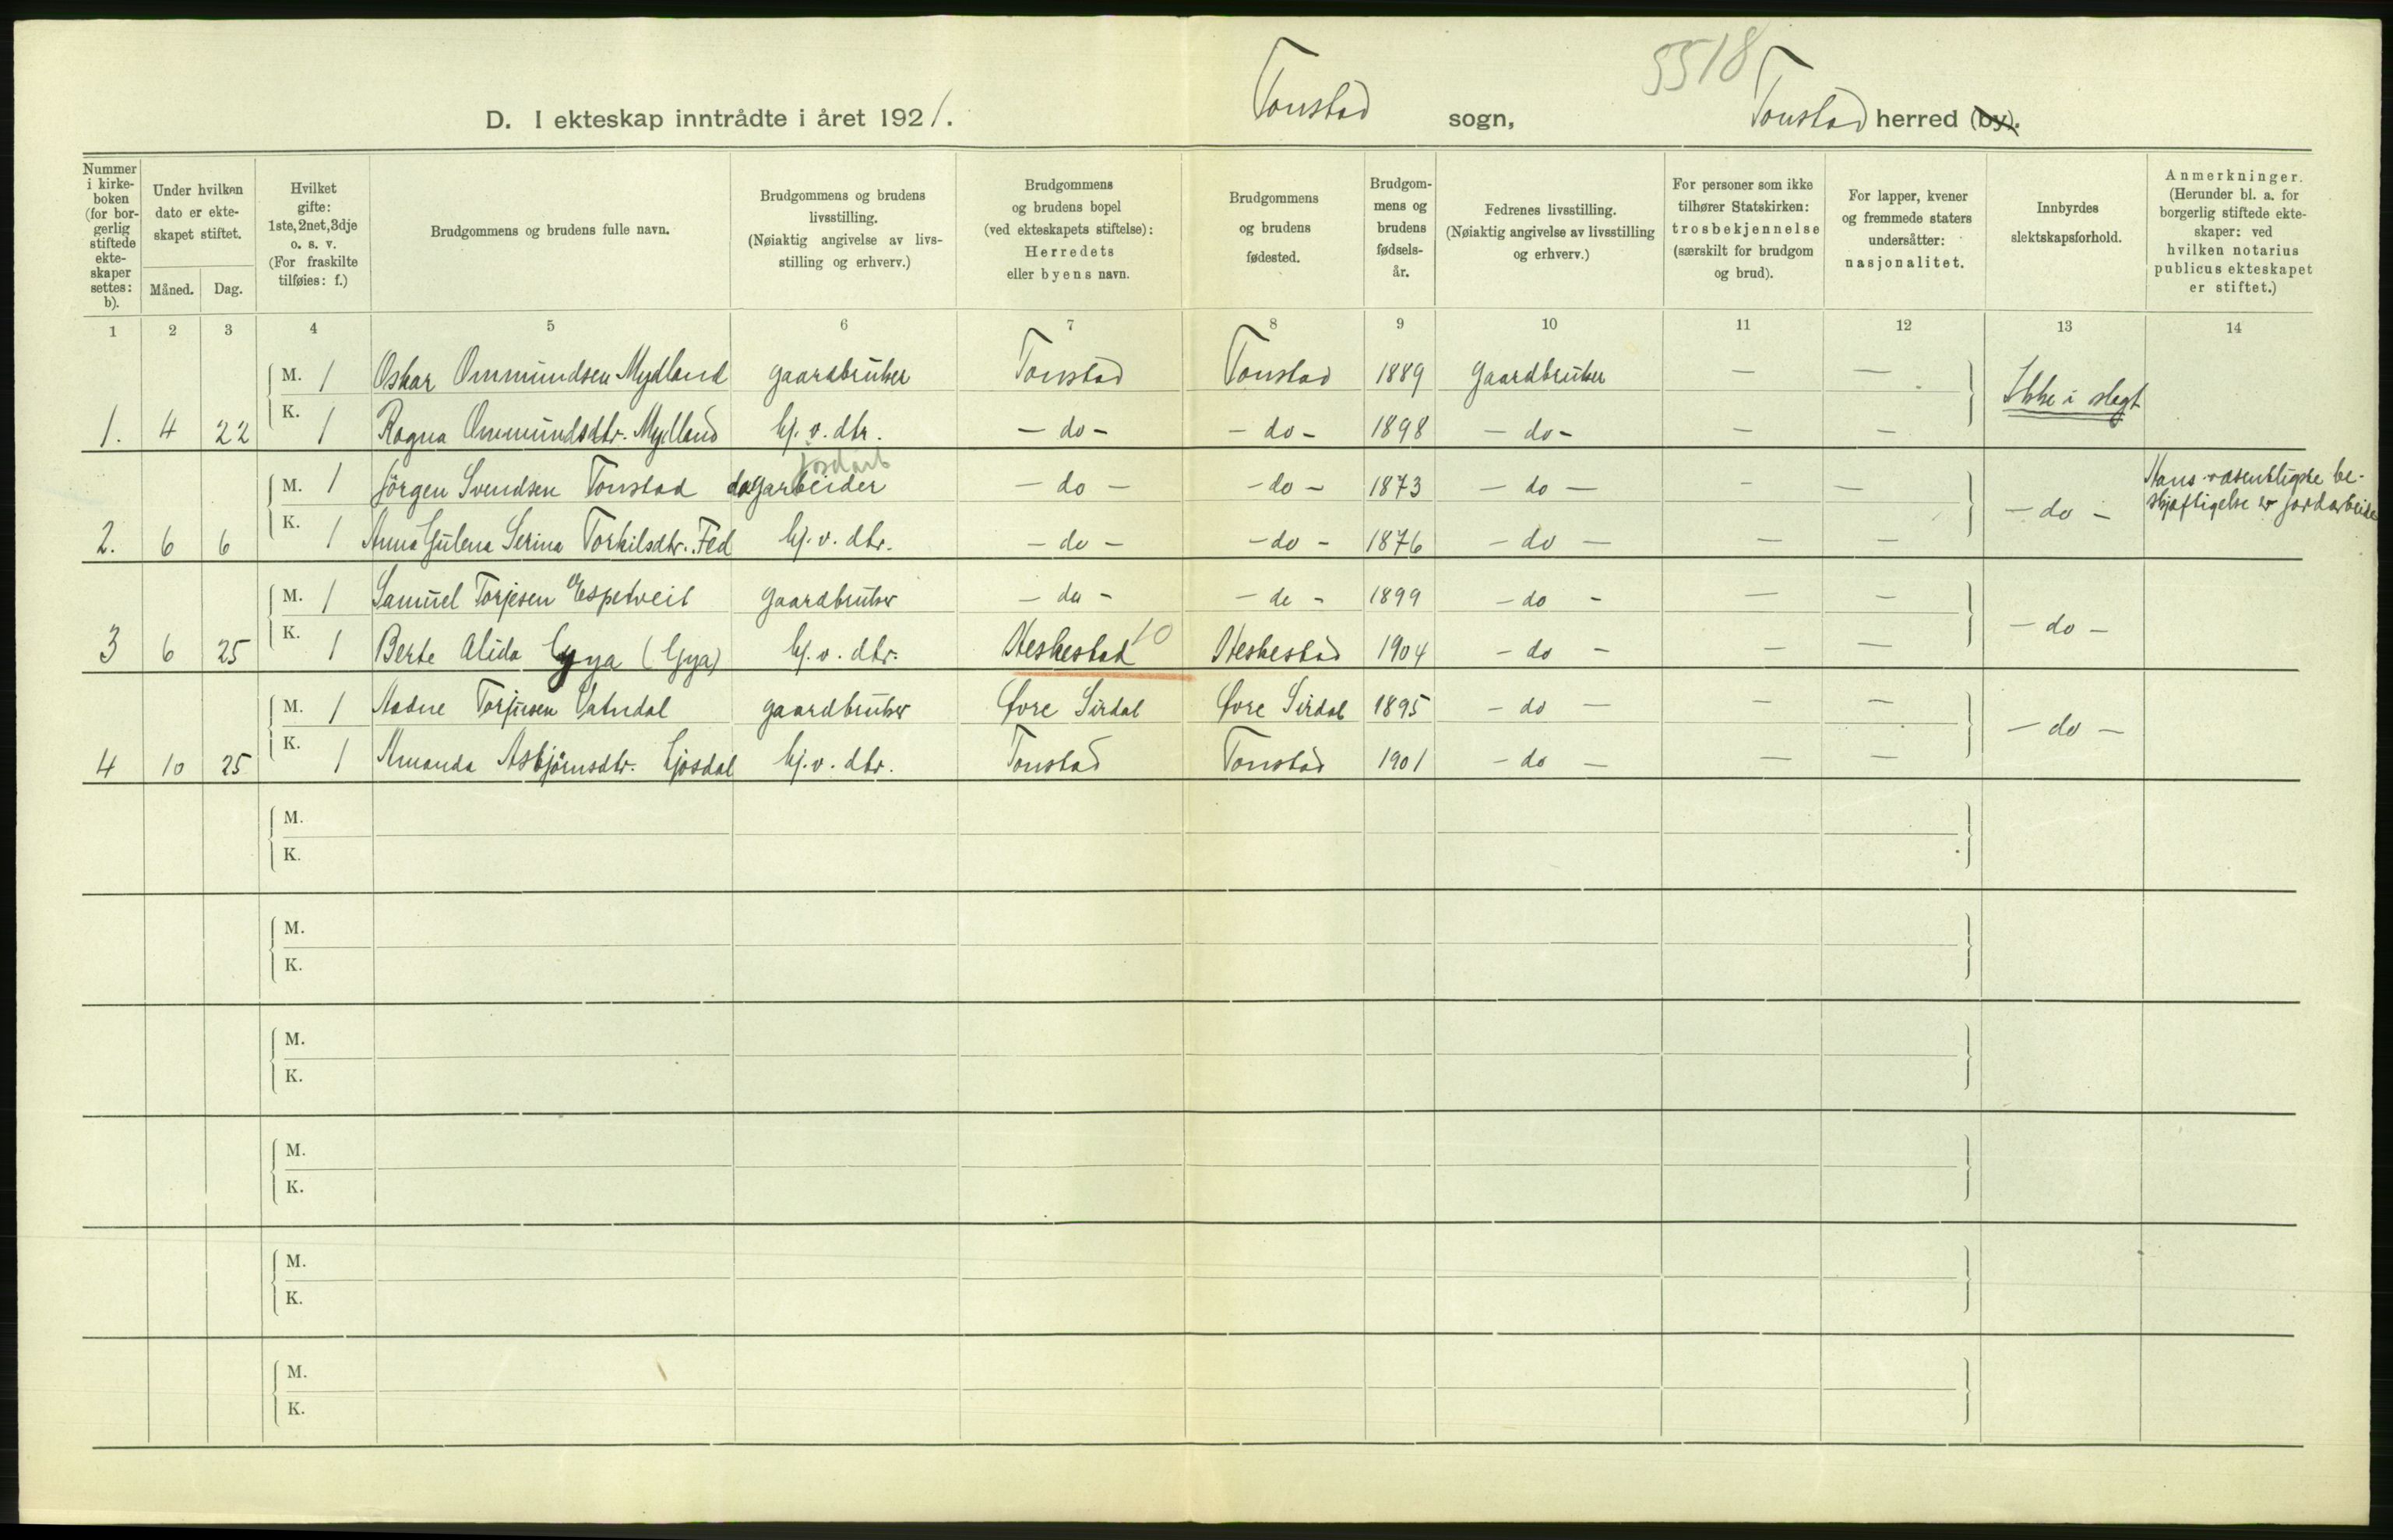 5518
D. I ekteskap inntrådte i året 1921. Tonstad sogn, Tonstad herred (by).
Nummer i kirke- boken (for bor- gerlig stiftede ekte- skaper settes: b).
Under hvilken dato er ekte- skapet stiftet.
Måned. Dag.
Hvilket gifte: 1ste, 2net, 3dje o. s. v. (For fraskilte tilføies: f.)
Brudgommens og brudens fulle navn.
Brudgommens og brudens livsstilling. (Nøiaktig angivelse av livs- stilling og erhverv.)
Brudgommens og brudens bopel (ved ekteskapets stiftelse): Herredets eller byens navn.
Brudgommens og brudens fødested.
Brudgom- mens og brudens fødsels- år.
Fedrenes livsstilling. (Nøiaktig angivelse av livsstilling og erhverv.)
For personer som ikke tilhører Statskirken: trosbekjennelse (særskilt for brudgom og brud).
For lapper, kvener og fremmede staters undersåtter: nasjonalitet.
Innbyrdes slektskapsforhold.
Anmerkninger. (Herunder bl. a. for borgerlig stiftede ekte- skaper: ved hvilken notarius publicus ekteskapet er stiftet.)
1 2 3 4 5 6 7 8 9 10 11 12 13 14
M. 1 Oskar Ommundsen Mydland gaardbruker Tonstad Tonstad 1889 Gaardbruker — — Ikke i slegt
1. 4 22 K. 1 Ragna Ommundsdtr. Mydland hj. v. dtr. — do — — do — 1898 — do — — —
jordarb
M. 1 Jörgen Svendsen Tonstad dagarbeider — do — — do — 1873 — do — — — — do — Hans væsentligste be-
skjæftigelse er jordarbeide
2. 6 6 K. 1 Anna Gulena Serina Torkilsdtr. Fed hj. v. dtr. — do — — do — 1876 — do — — —
M. 1 Samuel Torjesen Espetveit gaardbruker — do — — do — 1899 — do — — — — do —
3 6 25 K. 1 Berte Alida Gya (Gya) hj. v. dtr. Heskestad 10 Heskestad 1904 — do — — —
M. 1 Aadne Torjusen Vatndal gaardbruker Øvre Sirdal Øvre Sirdal 1895 — do — — — — do —
4 10 25 K. 1 Amanda Asbjörnsdtr. Gjosdal hj. v. dtr. Tonstad Tonstad 1901 — do — — —
M.
K.
M.
K.
M.
K.
M.
K.
M.
K.
M.
K.